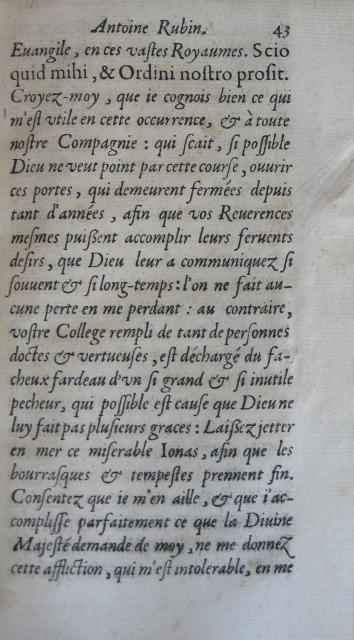 Antoine Rubin. 43
Euangile, en ces vaſtes Royaumes. Scio
quid mihi, & Ordini noſtro profit.
Croyez-moy, que ie cognois bien ce qui
m'eſt vtile en cette occurrence, & à toute
noſtre Compagnie : qui ſcait, ſi poſſible
Dieu ne veut point par cette courſe, ouurir
ces portes, qui demeurent fermées depuis
tant d'années, afin que vos Reuerences
meſmes puiſſent accomplir leurs feruents
deſirs, que Dieu leur a communiquez ſi
ſouuent & ſi long-temps : l'on ne fait au-
cune perte en me perdant : au contraire,
voſtre College rempli de tant de perſonnes
doctes & vertueuſes, eſt déchargé du fa-
cheux fardeau d'vn ſi grand & ſi inutile
pecheur, qui poſſible eſt cauſe que Dieu ne
luy fait pas pluſieurs graces : Laiſſez jetter
en mer ce miſerable Ionas, afin que les
bourraſques & tempeſtes prennent fin.
Conſentez que ie m'en aille, & que i'ac-
compliſſe parfaitement ce que la Diuine
Majeſté demande de moy, ne me donnez
cette affliction, qui m'eſt intolerable, en me